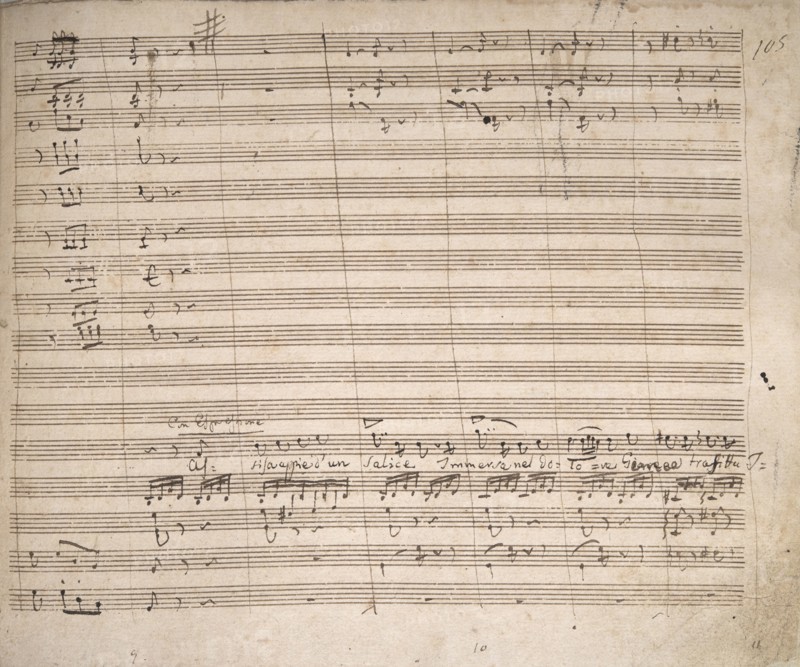 105
Con Espressione
As= sisa appie d'un Salice Immersa nel do= lo =re Gemea trafitta I=
9 10 11